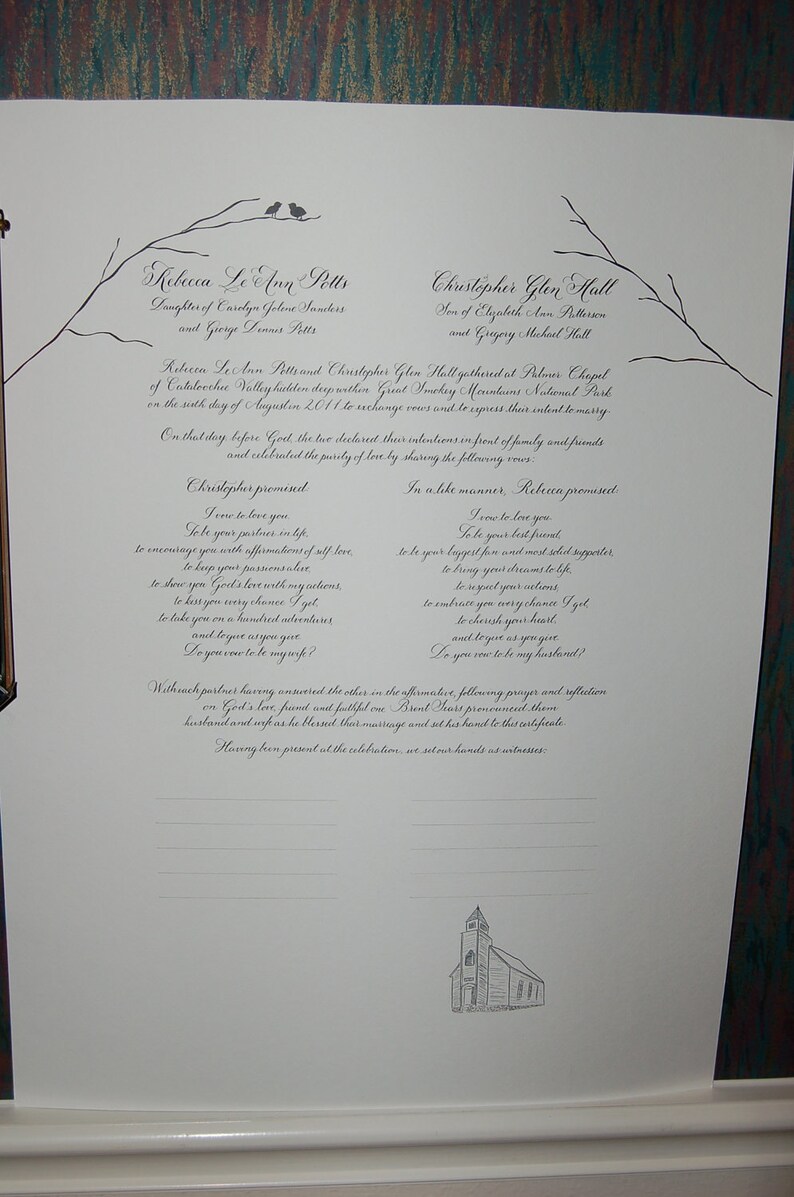 Rebecca Le Ann Potts
Daughter of Carolyn Jolene Sanders
and George Dennis Potts
Christopher Glen Hall
Son of Elizabeth Ann Patterson
and Gregory Michael Hall
Rebecca Le Ann Potts and Christopher Glen Hall gathered at Palmer Chapel
of Cataloochee Valley hidden deep within Great Smokey Mountains National Park
on the sixth day of August in 2011 to exchange vows and to express their intent to marry.
On that day, before God, the two declared their intentions in front of family and friends
and celebrated the purity of love by sharing the following vows:
Christopher promised:
I vow to love you.
To be your partner in life,
to encourage you with affirmations of self-love,
to keep your passions alive,
to show you God's love with my actions,
to kiss you every chance I get,
to take you on a hundred adventures,
and to give as you give.
Do you vow to be my wife?
In a like manner, Rebecca promised:
I vow to love you.
To be your best friend,
to be your biggest fan and most solid supporter,
to bring your dreams to life,
to respect your actions,
to embrace you every chance I get,
to cherish your heart,
and to give as you give.
Do you vow to be my husband?
With each partner having answered the other in the affirmative, following prayer and reflection
on God's love, friend and faithful one Brent Sears pronounced them
husband and wife as he blessed their marriage and set his hand to this certificate.
Having been present at the celebration, we set our hands as witnesses: